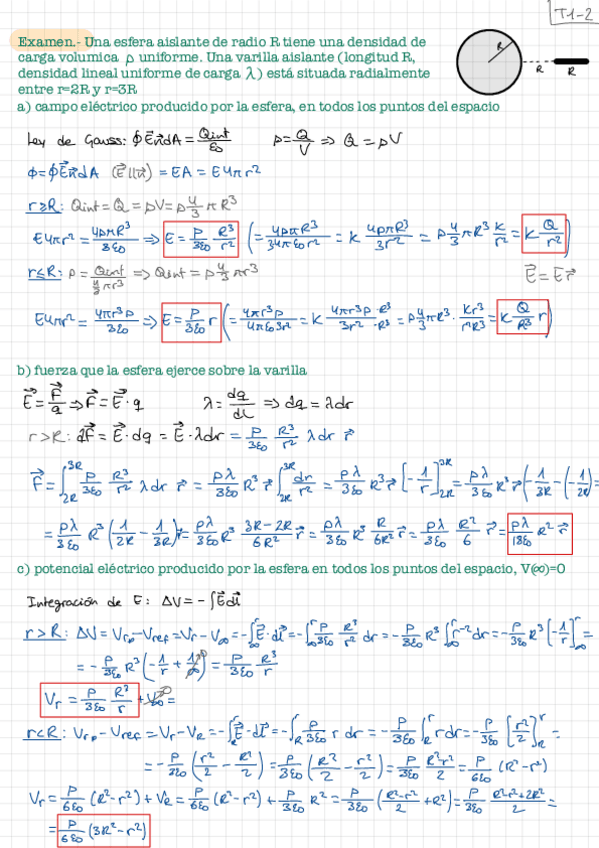 T1-2
Examen.- Una esfera aislante de radio R tiene una densidad de
carga volumica ρ uniforme. Una varilla aislante (longitud R,
densidad lineal uniforme de carga λ) está situada radialmente
entre r=2R y r=3R
R
R R
a) campo eléctrico producido por la esfera, en todos los puntos del espacio
Ley de Gauss: ∮E⃗n⃗dA = Qint/ε₀   ρ = Q/V ⇒ Q = ρV
Φ = ∮E⃗n⃗dA (E⃗∥n⃗) = EA = E4πr²
r≥R: Qint = Q = ρV = ρ 4/3 πR³
E4πr² = 4ρπR³/3ε₀ ⇒ E = ρ/3ε₀ R³/r² (= 4ρπR³/34πε₀r² = k 4ρπR³/3r² = ρ 4/3 πR³ k/r² = k Q/r²)
r≤R: ρ = Qint/(4/3 πr³) ⇒ Qint = ρ 4/3 πr³   E⃗ = E r⃗
E4πr² = 4πr³ρ/3ε₀ ⇒ E = ρ/3ε₀ r (= 4πr³ρ/4πε₀3r² = k 4πr³ρ/3r² ·R³/·R³ = ρ 4/3 πR³ · kr³/r²R³ = k Q/R³ r)
b) fuerza que la esfera ejerce sobre la varilla
E⃗ = F⃗/q ⇒ F⃗ = E⃗·q   λ = dq/dl ⇒ dq = λdr
r>R: dF⃗ = E⃗·dq = E⃗·λdr = ρ/3ε₀ R³/r² λdr r⃗
F⃗ = ∫_2R^3R ρ/3ε₀ R³/r² λdr r⃗ = ρλ/3ε₀ R³ r⃗ ∫_2R^3R dr/r² = ρλ/3ε₀ R³ r⃗ [-1/r]_2R^3R = ρλ/3ε₀ R³ r⃗ (-1/3R - (-1/2R) =
= ρλ/3ε₀ R³ (1/2R - 1/3R) r⃗ = ρλ/3ε₀ R³ 3R-2R/6R² r⃗ = ρλ/3ε₀ R³ R/6R² r⃗ = ρλ/3ε₀ R²/6 r⃗ = ρλ/18ε₀ R² r⃗
c) potencial eléctrico producido por la esfera en todos los puntos del espacio, V(∞)=0
Integración de E: ΔV = -∫E⃗dl⃗
r>R: ΔV = Vrp - Vref = Vr - V∞ = -∫_∞^r E⃗·dl⃗ = -∫_∞^r ρ/3ε₀ R³/r² dr = -ρ/3ε₀ R³ ∫_∞^r r⁻²dr = -ρ/3ε₀ R³ [-1/r]_∞^r =
= -ρ/3ε₀ R³ (-1/r + 1/∞) = ρ/3ε₀ R³/r
Vr = ρ/3ε₀ R³/r + V∞ =
r<R: Vrp - Vref = Vr - VR = -∫_R^r E⃗·dl⃗ = -∫_R^r ρ/3ε₀ r dr = -ρ/3ε₀ ∫_R^r rdr = -ρ/3ε₀ [r²/2]_R^r =
= -ρ/3ε₀ (r²/2 - R²/2) = ρ/3ε₀ (R²/2 - r²/2) = ρ/3ε₀ R²-r²/2 = ρ/6ε₀ (R²-r²)
Vr = ρ/6ε₀ (R²-r²) + VR = ρ/6ε₀ (R²-r²) + ρ/3ε₀ R² = ρ/3ε₀ (R²-r²/2 + R²) = ρ/3ε₀ R²-r²+2R²/2 =
= ρ/6ε₀ (3R²-r²)